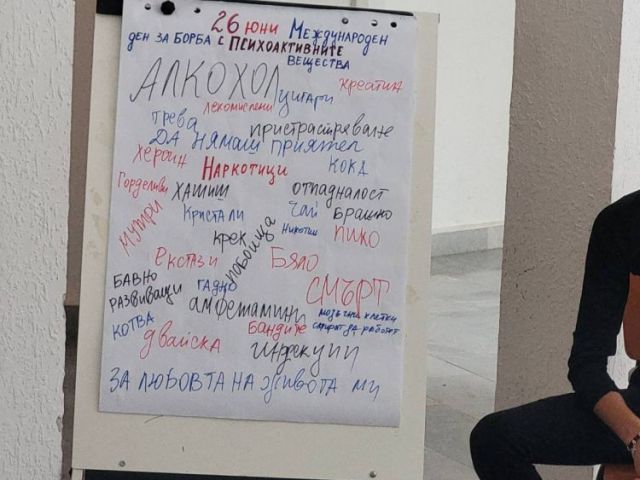 26 ЮНИ МЕЖДУНАРОДЕН
ДЕН ЗА БОРБА С ПСИХОАКТИВНИТЕ
ВЕЩЕСТВА
АЛКОХОЛ
креатин
цигари
лекомислени
трева
пристрастяване
ДА НЯМАШ ПРИЯТЕЛ
хероин
НАРКОТИЦИ
КОКА
Горделиви
ХАШИШ
отпадналост
мутри
Кристали
Чай
Брашно
Никотин
пико
крек
побоища
Екстази
Бяло
БАВНО
РАЗВИВАЩИ
ГАДНО
СМЪРТ
амфетамини
мозъчни клетки
спират да работят
КОТВА
Бандите
двайска
инжекции
ЗА ЛЮБОВТА НА живота ми